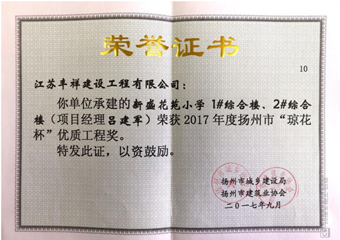 荣誉证书
10
江苏丰祥建设工程有限公司：
你单位承建的新盛花苑小学 1#综合楼、2#综合
楼（项目经理吕建军）荣获 2017 年度扬州市“琼花
杯”优质工程奖。
特发此证，以资鼓励。
扬州市城乡建设局
扬州市建筑业协会
二〇一七年九月